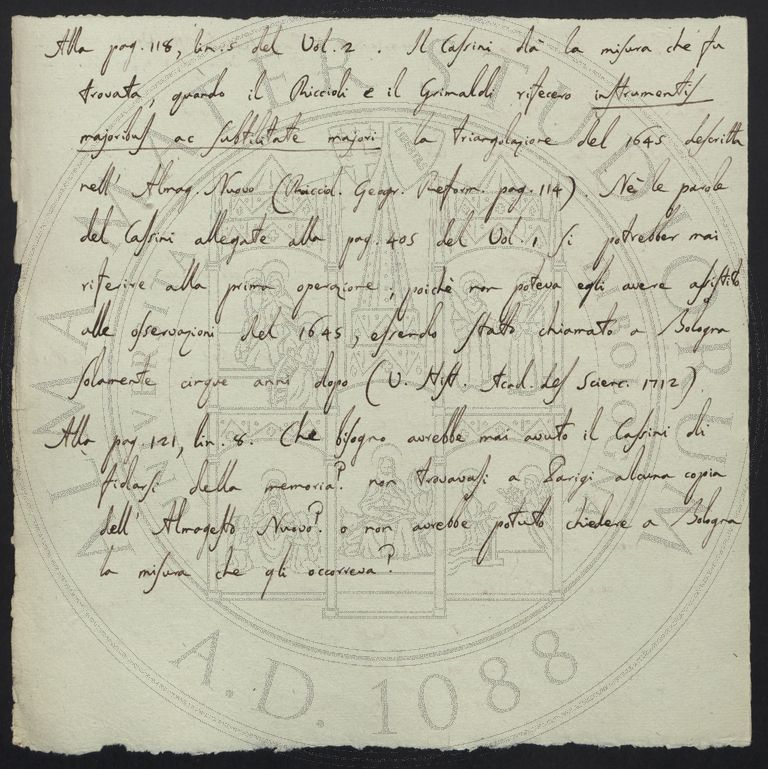 Alla pag. 118, lin. 5 del Vol. 2. Il Cassini dà la misura che fu
trovata, quando il Riccioli e il Grimaldi rifecero instrumentis
majoribus ac subtilitate majori la triangolazione del 1645 descritta
nell' Almag. Nuovo (Ricciol. Geogr. Reform. pag. 114). Nè le parole
del Cassini allegate alla pag. 405 del Vol. 1 si potrebber mai
riferire alla prima operazione; poichè non poteva egli avere assistito
alle osservazioni del 1645, essendo stato chiamato a Bologna
solamente cinque anni dopo (V. Hist. Acad. des Scienc. 1712).
Alla pag. 121, lin. 8. Che bisogno avrebbe mai avuto il Cassini di
fidarsi della memoria? non trovavasi a Parigi alcuna copia
dell' Almagesto Nuovo? o non avrebbe potuto chiedere a Bologna
la misura che gli occorreva?
ALMA MATER STUDIORUM
A.D. 1088